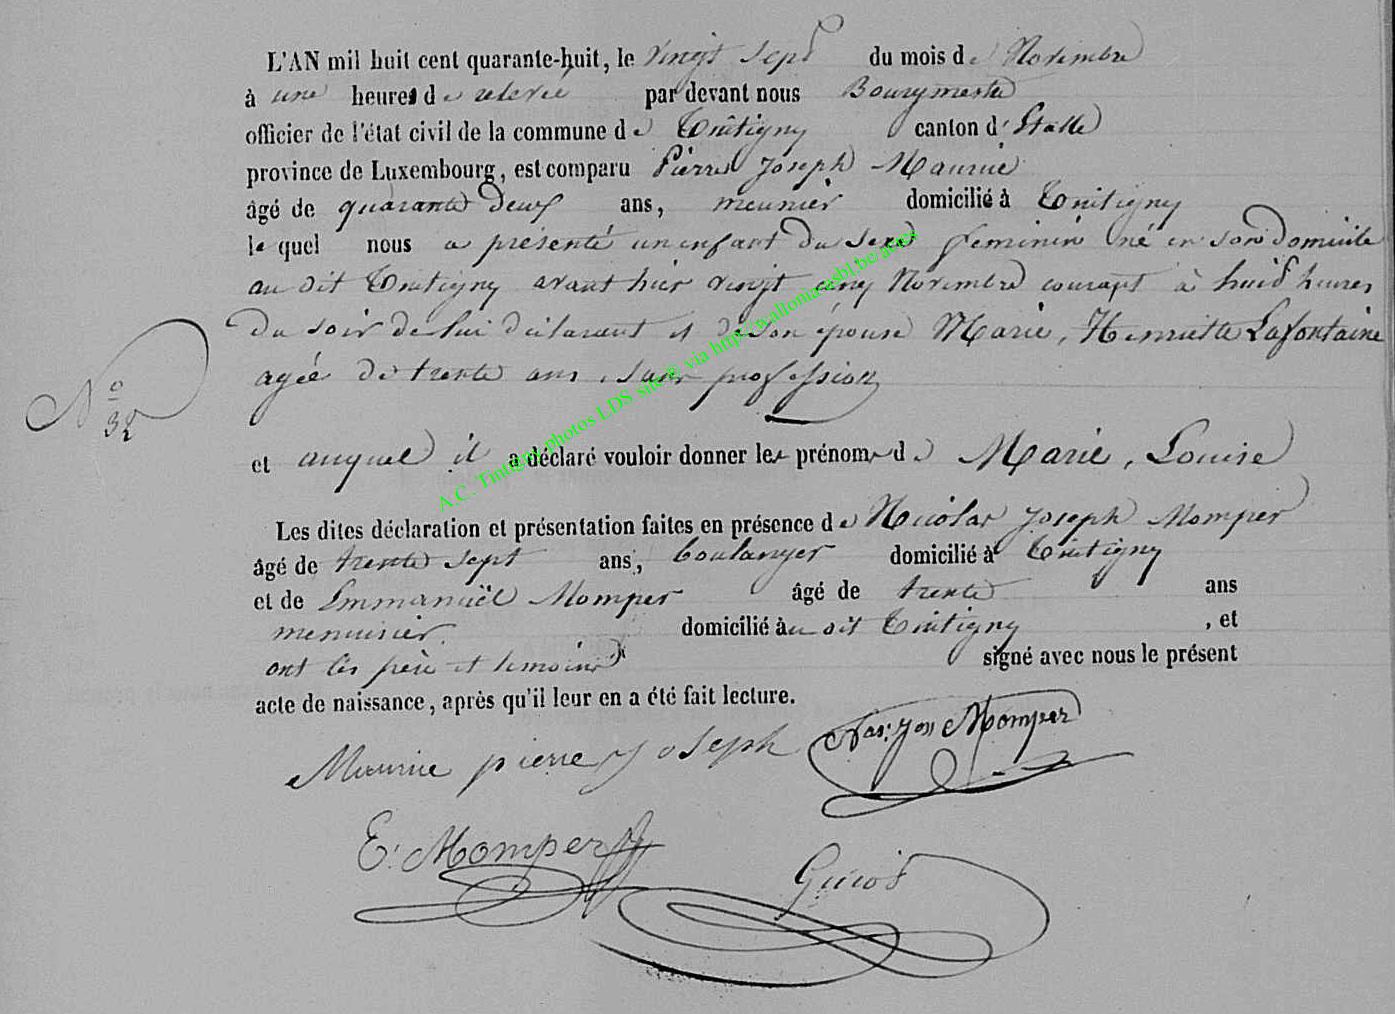 L'AN mil huit cent quarante-huit, le vingt sept du mois de Novembre
à une heure de relevée par devant nous Bourgmestre
officier de l'état civil de la commune de Tintigny canton d'Etalle
province de Luxembourg, est comparu Pierre Joseph Maurie
âgé de quarante deux ans, meunier domicilié à Tintigny
lequel nous a présenté un enfant du sexe feminin né en son domicile
au dit Tintigny avant hier vingt cinq Novembre courant à huit heures
du soir de lui déclarant et de son épouse Marie, Henriette Lafontaine
agée de trente ans, sans profession
N° 32
et auquel il a déclaré vouloir donner les prénoms de Marie, Louise
Les dites déclaration et présentation faites en présence de Nicolas Joseph Momper
âgé de trente sept ans, boulanger domicilié à Tintigny
et de Emmanuël Momper âgé de trente ans
menuisier domicilié au dit Tintigny, et
ont les père et temoins signé avec nous le présent
acte de naissance, après qu'il leur en a été fait lecture.
Maurie pierre Joseph Nas. Jos Momper
E. Momper
A.C. Tintigny photos LDS site via http://wallonia-asbl.be/actes